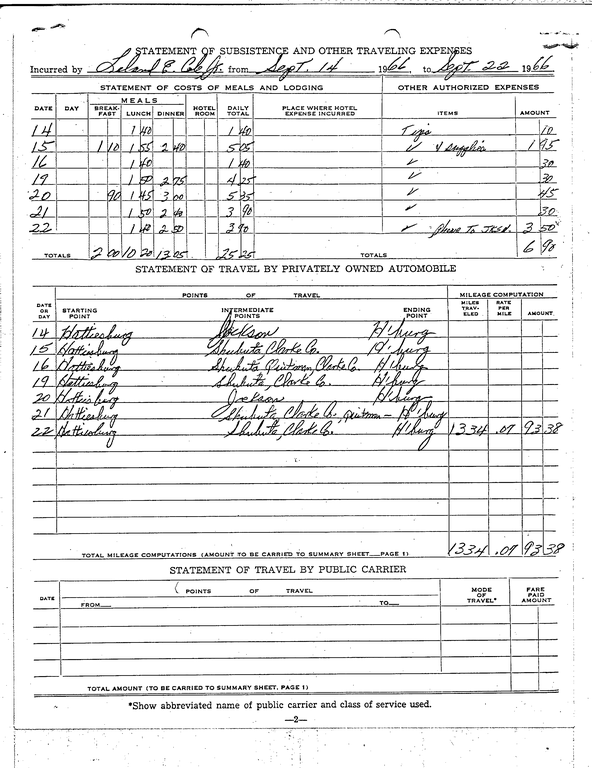 STATEMENT OF SUBSISTENCE AND OTHER TRAVELING EXPENSES
Incurred by Leland E. Cole Jr. from Sept. 14 1966, to Sept. 22 1966
STATEMENT OF COSTS OF MEALS AND LODGING OTHER AUTHORIZED EXPENSES
DATE DAY MEALS BREAK-FAST LUNCH DINNER HOTEL ROOM DAILY TOTAL PLACE WHERE HOTEL EXPENSE INCURRED ITEMS AMOUNT
14 1 40 1 40 Tips 10
15 1 10 1 55 2 40 5 05 ✓ & supplies 1 95
16 1 40 1 40 ✓ 30
19 1 50 2 75 4 25 ✓ 30
20 90 1 45 3 00 5 35 ✓ 45
21 1 50 2 40 3 90 ✓ 30
22 1 40 2 50 3 90 ✓ Phone to 3 50
TOTALS 2 00 10 20 13 05 25 25 TOTALS 6 90
STATEMENT OF TRAVEL BY PRIVATELY OWNED AUTOMOBILE
POINTS OF TRAVEL MILEAGE COMPUTATION
DATE OR DAY STARTING POINT INTERMEDIATE POINTS ENDING POINT MILES TRAV-ELED RATE PER MILE AMOUNT
14 Hattiesburg Jackson H'burg
15 Hattiesburg Shubuta Clarke Co. H'burg
16 Hattiesburg Shubuta Quitman, Clarke Co. H'burg
19 Hattiesburg Shubuta, Clarke Co. H'burg
20 Hattiesburg Jackson H'burg
21 Hattiesburg Shubuta, Clarke Co., Quitman - H'burg
22 Hattiesburg Shubuta, Clarke Co. H'burg 1334 .07 93.38
TOTAL MILEAGE COMPUTATIONS (AMOUNT TO BE CARRIED TO SUMMARY SHEET—PAGE 1) 1334 .07 93 38
STATEMENT OF TRAVEL BY PUBLIC CARRIER
DATE POINTS OF TRAVEL MODE OF TRAVEL* FARE PAID AMOUNT
FROM— TO—
TOTAL AMOUNT (TO BE CARRIED TO SUMMARY SHEET, PAGE 1)
*Show abbreviated name of public carrier and class of service used.
—2—